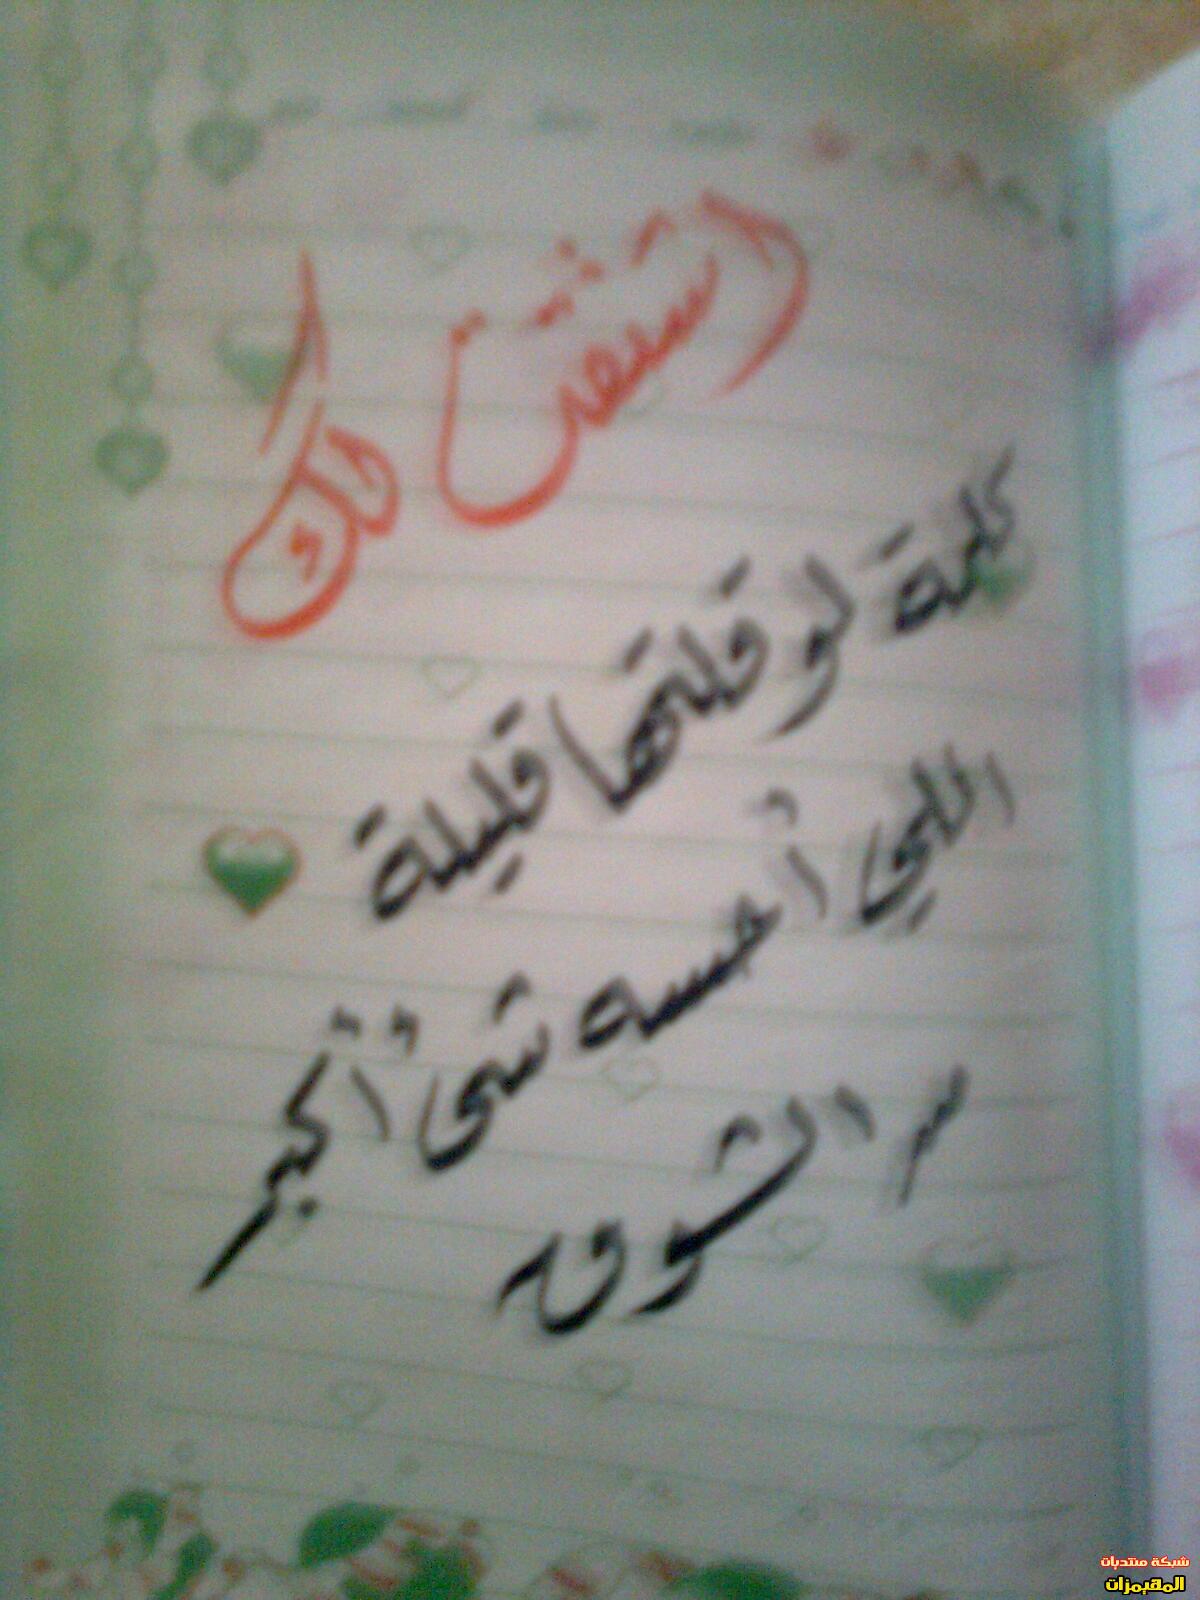 اشتقت لك
كلمة لو قلتها قليلة
اللي أحسه شئ أكبر
من الشوق
شبكة منتديات
المهيمزات